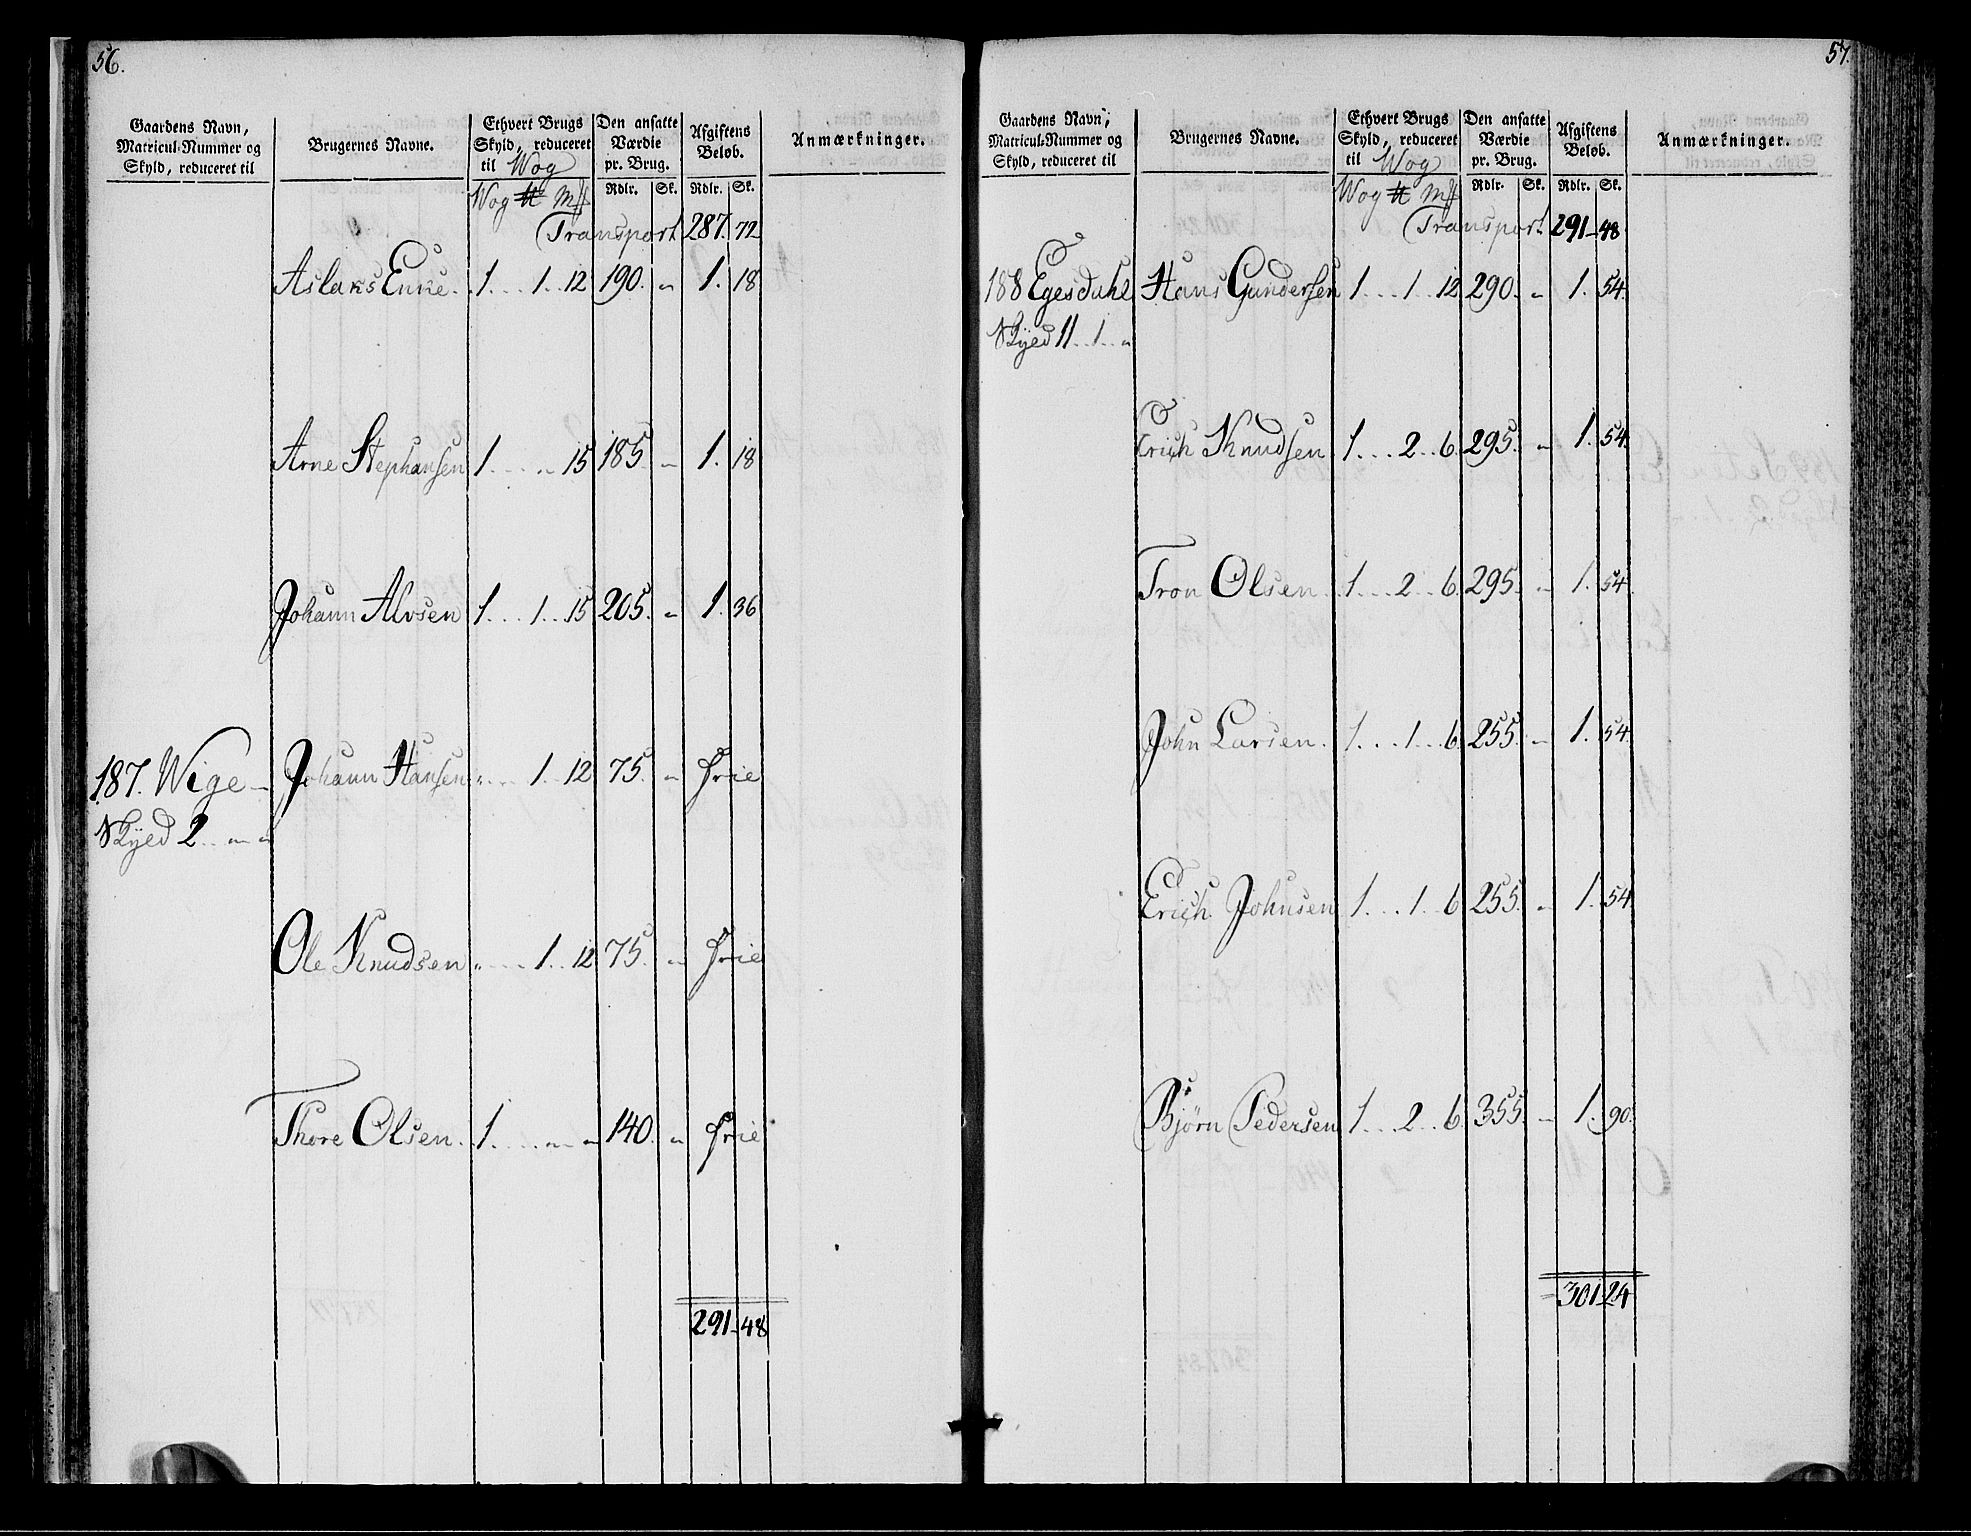 56.
Gaardens Navn, Matricul-Nummer og Skyld, reduceret til | Brugernes Navne. | Ethvert Brugs Skyld, reduceret til Wog | Den ansatte Værdie pr. Brug. | Afgiftens Beløb. | Anmærkninger.
Wog ℔ Mk | Rdlr. | Sk. | Rdlr. | Sk.
Transport 287. 72
Aslaks Enke. 1 . . . 1 . . 12 190. „ 1. 18
Arne Stephansen 1 . . . „ . . 15 185. „ 1. 18
Johann Alvsen 1 . . . 1 . . 15 205. „ 1. 36
187. Wige Johann Hansen „ . . . 1 . . 12 75. „ Frie
Skyld 2 . . „ „
Ole Knudsen „ . . . 1 . . 12 75. „ Frie
Thore Olsen. 1 . . . „ „ 140. „ Frie
291 – 48
57.
Gaardens Navn, Matricul-Nummer og Skyld, reduceret til | Brugernes Navne. | Ethvert Brugs Skyld, reduceret til Wog | Den ansatte Værdie pr. Brug. | Afgiftens Beløb. | Anmærkninger.
Wog ℔ Mk | Rdlr. | Sk. | Rdlr. | Sk.
Transport 291 – 48
188 Egesdahl Hans Gundersen 1 . . . 1 . . 12 290. „ 1. 54.
Skyld 11 . . 1 . . „
Erich Knudsen 1 . . . 2 . . 6 295. „ 1. 54.
Tron Olsen 1 . . . 2 . . 6 295. „ 1. 54.
John Larsen. 1 . . . 1 . . 6 255. „ 1. 54.
Erich Johnsen 1 . . . 1 . . 6 255. „ 1. 54.
Bjørn Pedersen 1 . . . 2 . . 6 355. „ 1. 90.
301 24